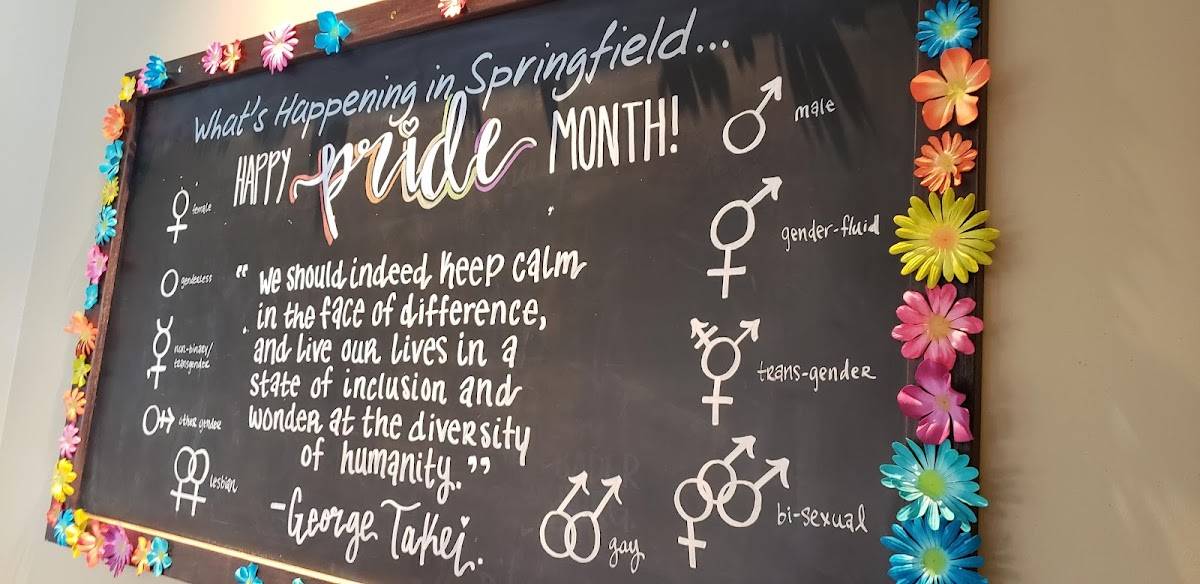 What's Happening in Springfield...
HAPPY pride MONTH!
female
genderless
non-binary/
transgender
other gender
lesbian
"We should indeed keep calm
in the face of difference,
and live our lives in a
state of inclusion and
wonder at the diversity
of humanity."
-George Takei.
male
gender-fluid
trans-gender
bi-sexual
gay